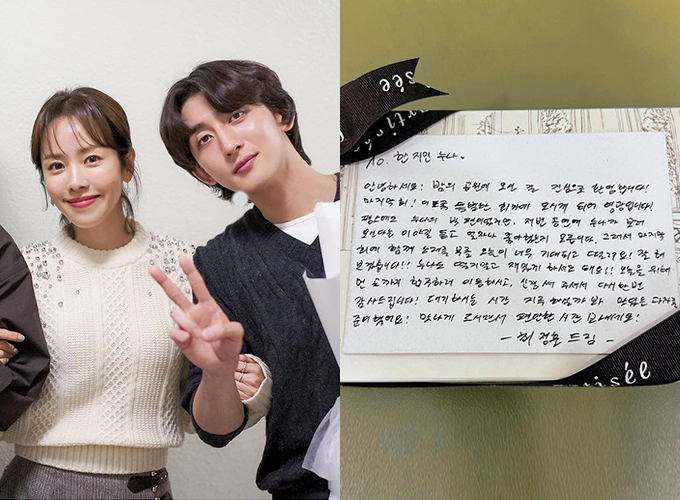 isée
artisé
To. 한지민 누나.
안녕하세요! 밤의 공원에 오신 걸 진심으로 환영합니다!
마지막회! 이토록 특별한 회차에 모시게 되어 영광입니다!
평소에도 누나의 팬이었지만, 저번 공연에 누나가 보러
오신다는 이야길 듣고 얼마나 좋아했는지 모릅니다. 그래서 마지막
회에 함께 노래를 부를 오늘이 너무 기대되고 떨려요! 잘 해
보겠습니다!! 누나도 떨지말고 재밌게 하셔도 돼요!! 오늘을 위해
먼 곳까지 이동하시고, 신경 써 주셔서 다시 한번
감사드립니다! 대기해주는 시간 지루하실까 봐 맛있는 다과를
준비했어요! 맛나게 드시면서 편안한 시간 보내세요!
- 최정훈 드림 -
isée